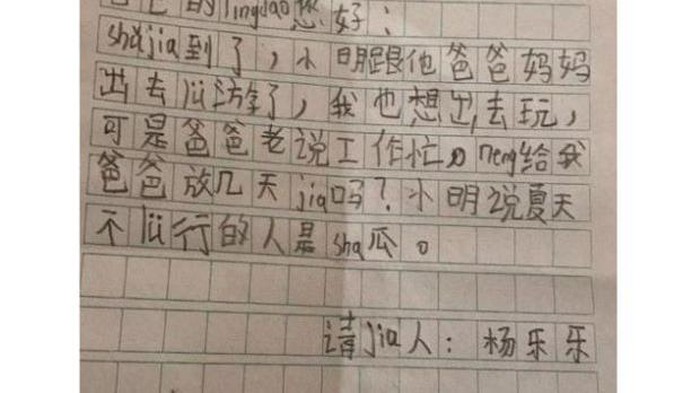 爸爸的lingdao您好：
shǔjia到了，小明跟他爸爸妈妈
出去lü游了，我也想出去玩，
可是爸爸老说工作忙。neng给我
爸爸放几天jia吗？小明说夏天
不lü行的人是sha瓜。
请jia人：杨乐乐